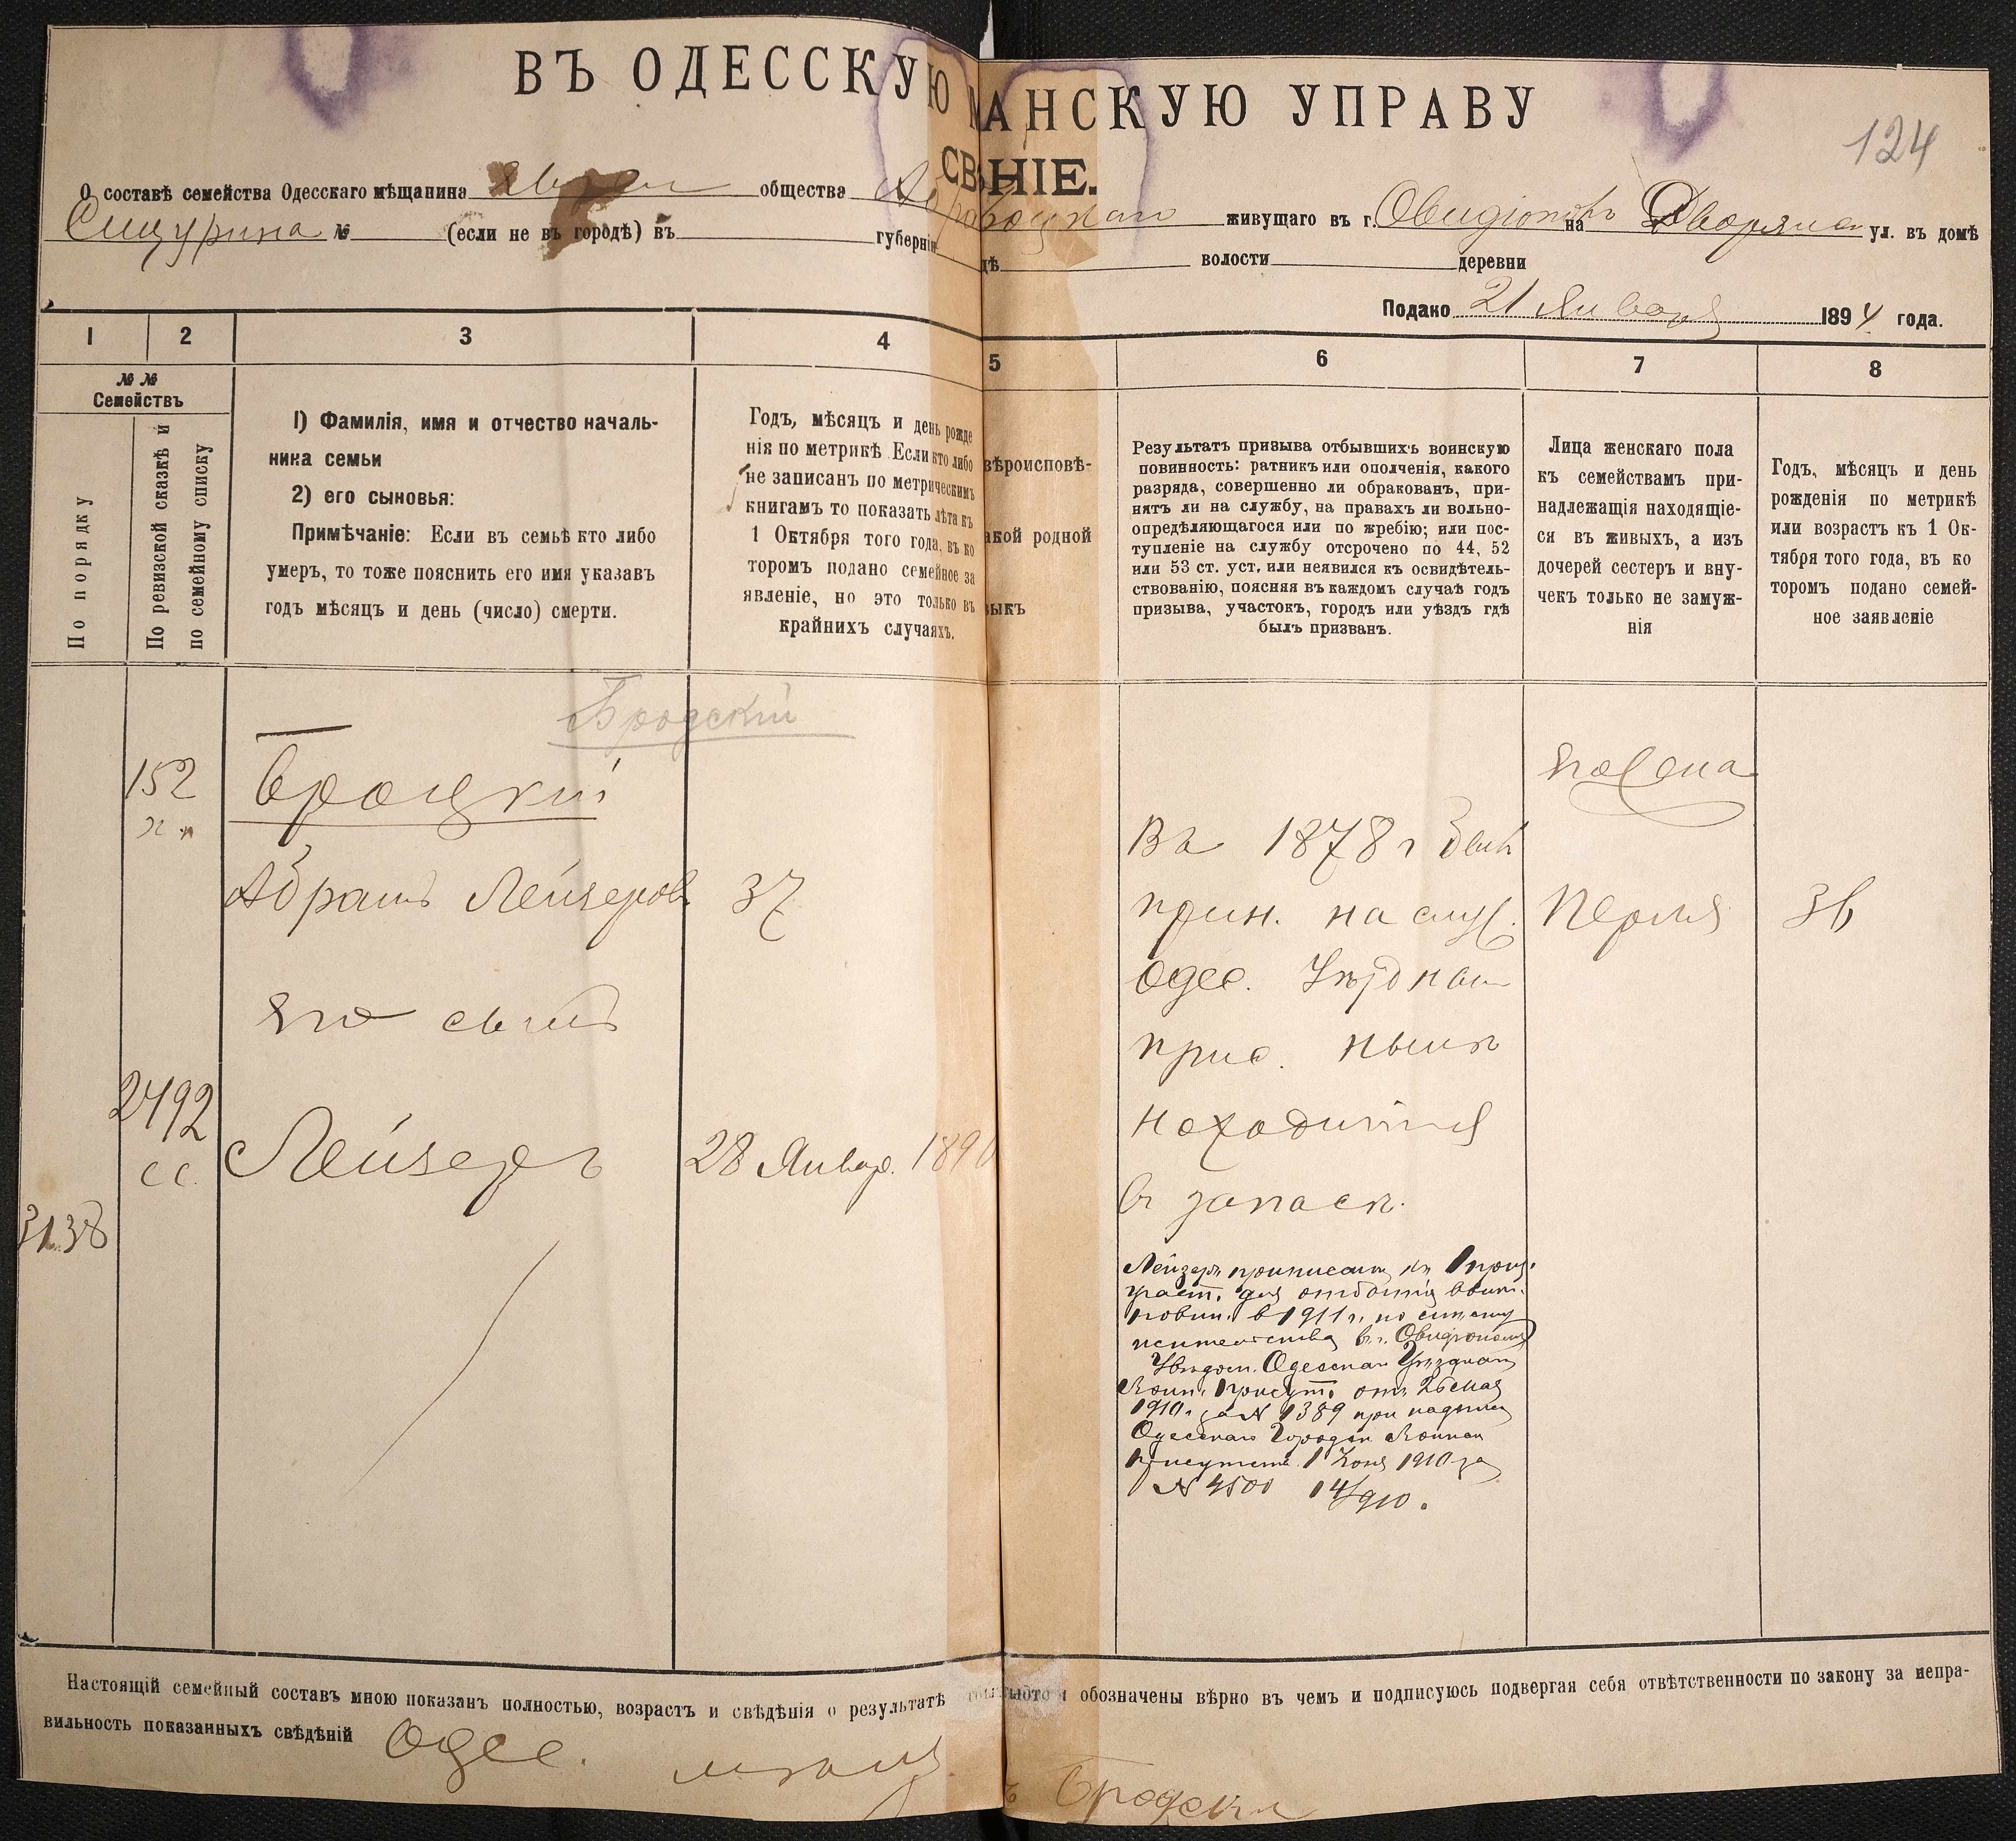 ВЪ ОДЕССКУЮ МѢЩАНСКУЮ УПРАВУ
124
СВѢДѢНІЕ.
О составѣ семейства Одесскаго мѣщанина общества живущаго въ г. Овидіополѣ на Дворянс ул. въ домѣ
Сищурина № (если не въ городѣ) въ губерніи
волости деревни
Подано 21 Января 1894 года.
1 2 3 4 5 6 7 8
№№
Семействъ
По порядку
По ревизской сказкѣ и
по семейному списку
1) Фамилія, имя и отчество началь-
ника семьи
2) его сыновья:
Примѣчаніе: Если въ семьѣ кто либо
умеръ, то тоже пояснить его имя указавъ
годъ мѣсяцъ и день (число) смерти.
Годъ, мѣсяцъ и день рожде
нія по метрикѣ Если кто либо
не записанъ по метрическимъ
книгамъ то показать лѣта къ
1 Октября того года, въ ко
торомъ подано семейное за
явленіе, но это только въ
крайнихъ случаяхъ.
вѣроисповѣ-
акой родной
зыкъ
Результатъ призыва отбывшихъ воинскую
повинность: ратникъ или ополченія, какого
разряда, совершенно ли обракованъ, при-
нятъ ли на службу, на правахъ ли вольно-
опредѣляющагося или по жребію; или пос-
тупленіе на службу отсрочено по 44, 52
или 53 ст. уст. или неявился къ освидѣтель-
ствованію, поясняя въ каждомъ случаѣ годъ
призыва, участокъ, городъ или уѣздъ гдѣ
былъ призванъ.
Лица женскаго пола
къ семействамъ при-
надлежащія находящіе-
ся въ живыхъ, а изъ
дочерей сестеръ и вну-
чекъ только не замуж-
нія
Годъ, мѣсяцъ и день
рожденія по метрикѣ
или возрастъ къ 1 Ок-
тября того года, въ ко
торомъ подано семей-
ное заявленіе
Бродскій
152
Броцкій
Абрамъ Лейзеровъ 37
его сынъ
2492
сс.
Лейзеръ 28 Январ. 189
3138
его жена
Перля 36
Въ 1878 г былъ
прин. на служ.
Одес. Уѣзднам
прис. нынѣ
находится
въ запасѣ.
Лейзеръ приписанъ къ 1 приз.
участ. для отбытія воин.
повин. въ 1911 г. по
жительства въ г. Овидіополѣ
Увѣдом. Одесскаго Уѣзднаго
Воин. Присут. отъ 26 мая
1910 г. за № 1389 при надписи
Одесскаго Городск Воинск
Присутств. 1 Іюня 1910 за
№ 4500 14/910.
Настоящій семейный составъ мною показанъ полностью, возрастъ и свѣдѣнія о результатѣ обозначены вѣрно въ чемъ и подписуюсь подвергая себя отвѣтственности по закону за непра-
вильность показанныхъ свѣдѣній Одес. мѣщан Бродски